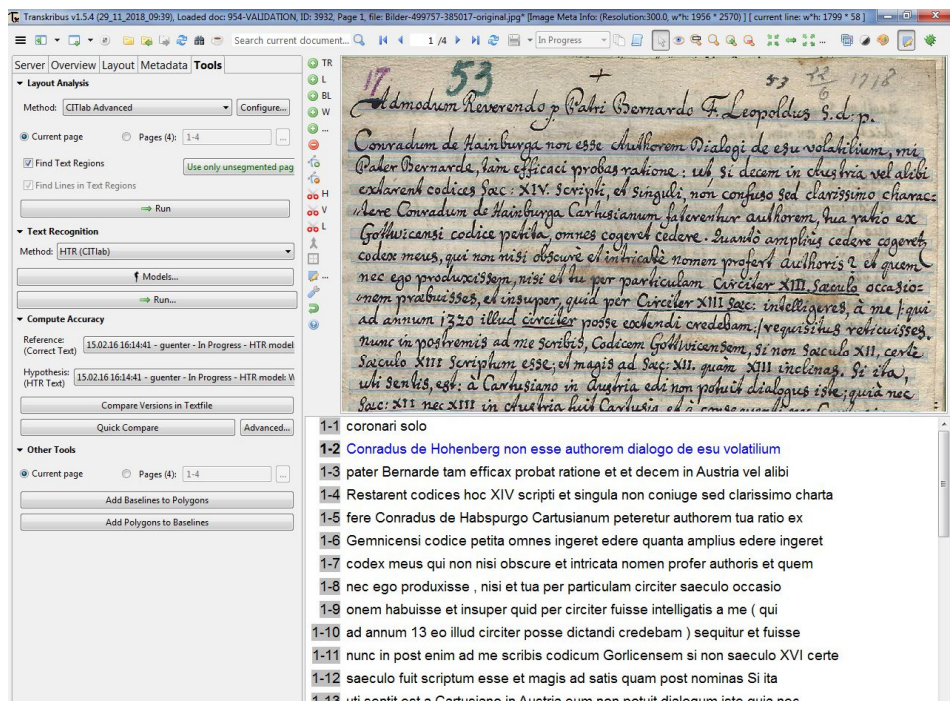 Transkribus v1.5.4 (29_11_2018_09:39), Loaded doc: 954-VALIDATION, ID: 3932, Page 1, file: Bilder-499757-385017-original.jpg* [Image Meta Info: (Resolution:300.0, w*h: 1956 * 2570) ] [ current line: w*h: 1799 * 58 ]
Search current document... 1 /4 In Progress
Server Overview Layout Metadata Tools
Layout Analysis
Method: CITlab Advanced Configure...
Current page Pages (4): 1-4 ...
Find Text Regions Use only unsegmented pag
Find Lines in Text Regions
Run
Text Recognition
Method: HTR (CITlab)
Models...
Run...
Compute Accuracy
Reference:
(Correct Text) 15.02.16 16:14:41 - guenter - In Progress - HTR model
Hypothesis:
(HTR Text) 15.02.16 16:14:41 - guenter - In Progress - HTR model: W
Compare Versions in Textfile
Quick Compare Advanced...
Other Tools
Current page Pages (4): 1-4 ...
Add Baselines to Polygons
Add Polygons to Baselines
TR
L
BL
W
...
H
V
L
...
17. 53 + 53 12/6 1718
Admodum Reverendo p. Patri Bernardo F. Leopoldus S. d. p.
Conradum de Hainburga non esse Authorem Dialogi de esu volatilium, mi
Pater Bernarde, tàm efficaci probas ratione: ut, si decem in Austria vel alibi
extarent codices Sæc: XIV. scripti, et singuli, non confuso sed clarissimo charac=
tere Conradum de Hainburga Cartusianum faterentur authorem, tua ratio ex
Gottwicensi codice petita, omnes cogeret cedere. Quantò amplius cedere cogeret
codex meus, qui non nisi obscurè et intricatè nomen profert authoris? et quem
nec ego produxissem, nisi et tu per particulam Circiter XIII. Sæculo occasio=
onem præbuisses, et insuper, quid per Circiter XIII Sæc: intelligeres, à me (qui
ad annum 1320 illud circiter posse extendi credebam) requisitus reticuisses.
nunc in postremis ad me scribis, Codicem Gottwicensem, si non sæculo XII, certè
Sæculo XIII Scriptum esse; et magis ad Sæc: XII. quam XIII inclinas. Si ita,
uti sentis, est: à Cartusiano in Austria edi non potuit dialogus iste; quià nec
Sæc: XII nec XIII in Austria fuit Cartusia
1-1 coronari solo
1-2 Conradus de Hohenberg non esse authorem dialogo de esu volatilium
1-3 pater Bernarde tam efficax probat ratione et et decem in Austria vel alibi
1-4 Restarent codices hoc XIV scripti et singula non coniuge sed clarissimo charta
1-5 fere Conradus de Habspurgo Cartusianum peteretur authorem tua ratio ex
1-6 Gemnicensi codice petita omnes ingeret edere quanta amplius edere ingeret
1-7 codex meus qui non nisi obscure et intricata nomen profer authoris et quem
1-8 nec ego produxisse , nisi et tua per particulam circiter saeculo occasio
1-9 onem habuisse et insuper quid per circiter fuisse intelligatis a me ( qui
1-10 ad annum 13 eo illud circiter posse dictandi credebam ) sequitur et fuisse
1-11 nunc in post enim ad me scribis codicum Gorlicensem si non saeculo XVI certe
1-12 saeculo fuit scriptum esse et magis ad satis quam post nominas Si ita
1-13 uti sentit est a Cartusiano in Austria eum non potuit dialogum iste quia nec